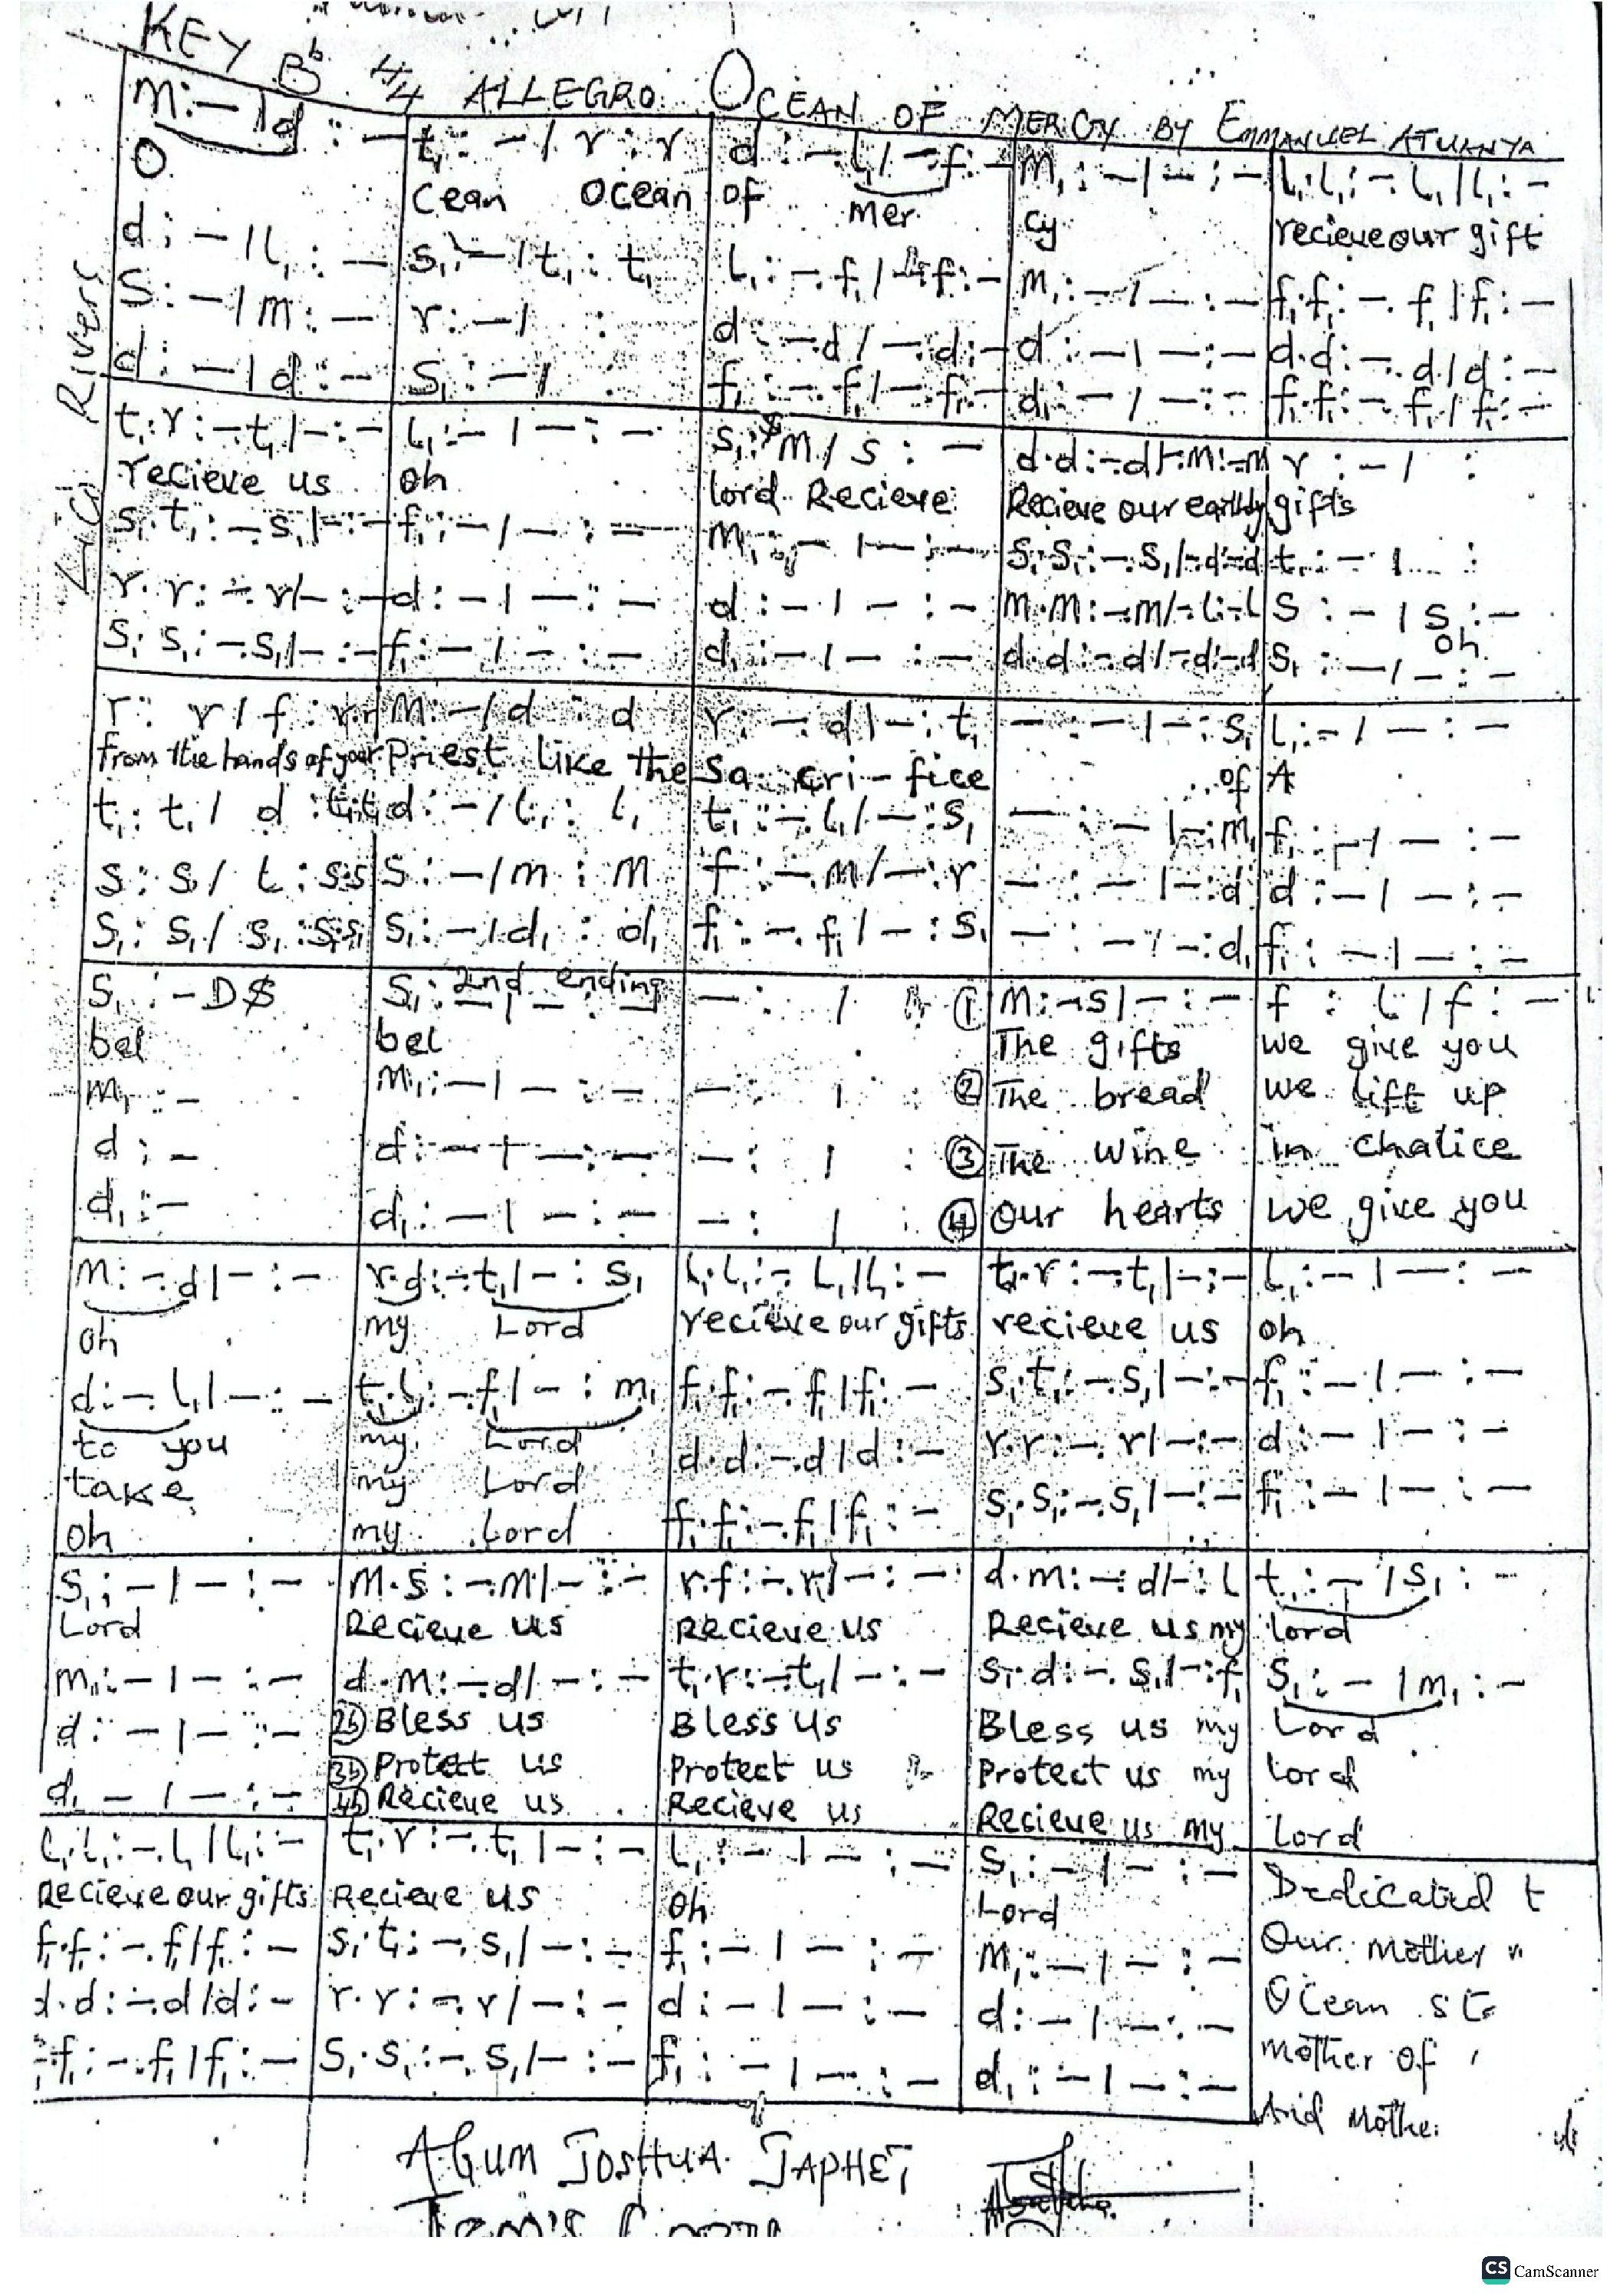 KEY Bb 4/4 ALLEGRO OCEAN OF MERCY BY EMMANUEL ATUANYA
m:-|d:- t,:-|r:r d:-.l,|-.f:- m,:-|-:- l,.l,:-.l,|l,:-
O cean Ocean of mer cy recieve our gift
d:-|l,:- s,:-|t,:t, l,:-.f,|-.f,:- m,:-|-:- f,.f,:-.f,|f,:-
S:-|m:- r:-| : d:-.d|-.d:- d:-|-:- d.d:-.d|d:-
d:-|d:- s,:-| : f,:-.f,|-.f,:- d,:-|-:- f,.f,:-.f,|f,:-
Rivers
t,.r:-.t,|-:- l,:-|-:- s,:m|s:- d.d:-.d|-.m:-.m r:-| :
recieve us oh lord Recieve Recieve our earthly gifts
s,.t,:-.s,|-:- f,:-|-:- m,:-|-:- s,.s,:-.s,|-.d:-.d t,:-| :
r.r:-.r|-:- d:-|-:- d:-|-:- m.m:-.m|-.l:-.l s:-|s,:-
oh
s,.s,:-.s,|-:- f,:-|-:- d,:-|-:- d.d:-.d|-.d:-.d s,:-|-:-
r:r|f:r.r m:-|d:d r:-.d|-:t, -:-|-:s, l,:-|-:-
from the hands of your Priest like the Sa cri-fice of A
t,:t,|d:t,.t, d:-|l,:l, t,:-.l,|-:s, -:-|-:m, f,:-|-:-
s:s|t:s.s s:-|m:m f:-.m|-:r -:-|-:d d:-|-:-
s,:s,|s,:s,.s, s,:-|d,:d, f,:-.f,|-:s, -:-|-:d, f,:-|-:-
s,:- D$ s,:-|-:- 2nd ending -: | : ① m:-.s|-:- f:l|f:-
bel bel The gifts we give you
m,:- m,:-|-:- -: | : ② The bread we lift up
d:- d:-|-:- -: | : ③ The wine in chalice
d,:- d,:-|-:- -: | : ④ Our hearts we give you
m:-.d|-:- r.d:-.t,|-:s, l,.l,:-.l,|l,:- t,.r:-.t,|-:- l,:-|-:-
oh my Lord recieve our gifts recieve us oh
d:-.l,|-:- t,.l,:-.f,|-:m, f,.f,:-.f,|f,:- s,.t,:-.s,|-:- f,:-|-:-
to you my Lord d.d:-.d|d:- r.r:-.r|-:- d:-|-:-
take my Lord
oh my Lord f,.f,:-.f,|f,:- s,.s,:-.s,|-:- f,:-|-:-
s,:-|-:- m.s:-.m|-:- r.f:-.r|-:- d.m:-.d|-:l t,:-|s,:-
Lord Recieve us Recieve us Recieve us my lord
m,:-|-:- d.m:-.d|-:- t,.r:-.t,|-:- s,.d:-.s,|-:f, s,:-|m,:-
d:-|-:- 2b Bless us Bless us Bless us my Lord
3b Protect us Protect us Protect us my lord
d,:-|-:- 4b Recieve us Recieve us Recieve us my Lord
l,.l,:-.l,|l,:- t,.r:-.t,|-:- l,:-|-:- s,:-|-:-
Recieve our gifts Recieve us oh Lord
f,.f,:-.f,|f,:- s,.t,:-.s,|-:- f,:-|-:- m,:-|-:-
d.d:-.d|d:- r.r:-.r|-:- d:-|-:- d:-|-:-
f,:-.f,|f,:- s,.s,:-.s,|-:- f,:-|-:- d,:-|-:-
Dedicated t
Our mother
Ocean
mother of
And Mothe
AGUM JOSHUA JAPHET
CS CamScanner